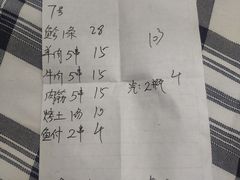 7号
鱼1条 28
羊肉5串 15
牛肉5串 15
肉筋5串 15
烤土1份 10
鱼付2串 4
汽:2瓶 4
103